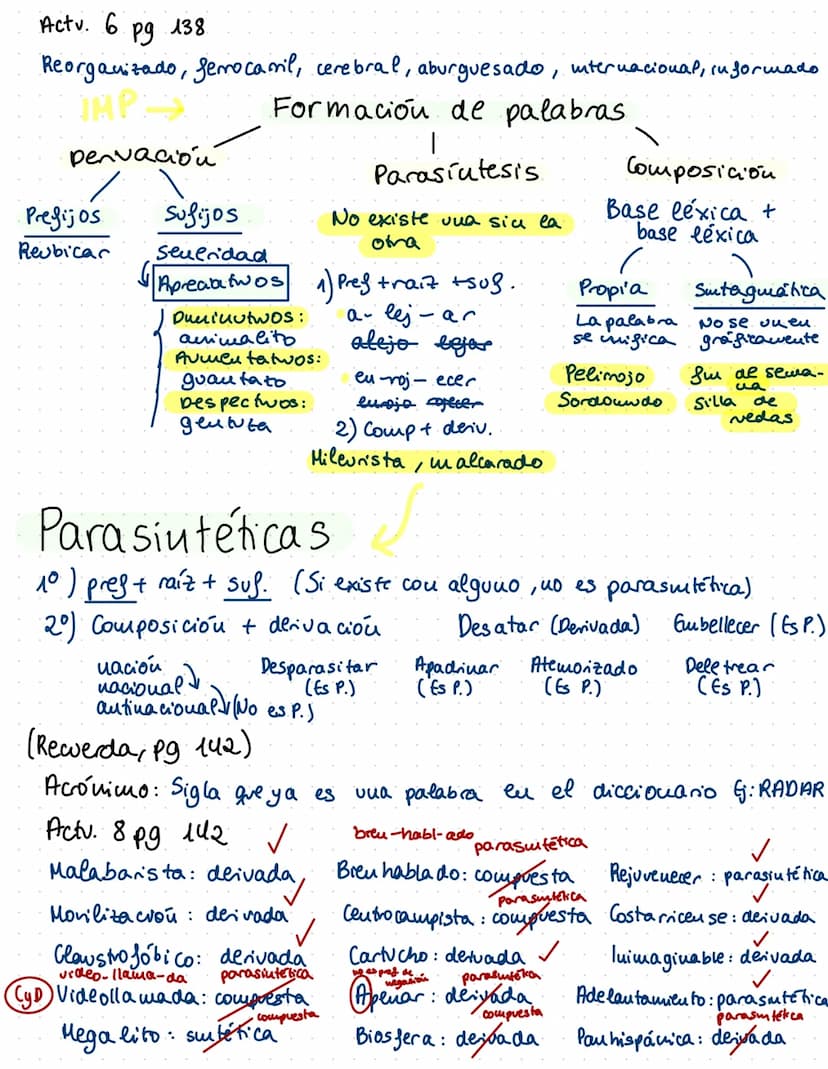 Actv. 6 pg 138
Reorganizado, ferrocarril, cerebral, aburguesado, internacional, informado
IMP →
Formación de palabras
Derivación
Parasíntesis
Composición
Prefijos
Reubicar
Sufijos
Severidad
Apreciativos
Diminutivos:
animalito
Aumentativos:
guantazo
Despectivos:
gentuza
No existe una sin la
otra
1) Pref + raíz + suf.
a- lej - ar
alejo lejar
en - roj - ecer
enrojo ojecer
2) Comp + deriv.
Mileurista, malcarado
Base léxica +
base léxica
Propia
La palabra
se unifica
Pelirrojo
Sordomudo
Sintagmática
No se unen
gráficamente
fin de sema-
na
Silla de
ruedas
Parasintéticas
1º) pref + raíz + suf. (Si existe con alguno, no es parasintética)
2º) Composición + derivación Desatar (Derivada) Embellecer (Es P.)
nación
nacional
antinacional (No es P.)
Desparasitar
(Es P.)
Apadrinar
(Es P.)
Atemorizado
(Es P.)
Deletrear
(Es P.)
(Recuerda, pg 142)
Acrónimo: Sigla que ya es una palabra en el diccionario Ej: RADAR
Actv. 8 pg 142
Malabarista: derivada
Movilización: derivada
Claustrofóbico: derivada
video-llama-da parasintética
CyD Videollamada: compuesta
compuesta
Megalito: sintética
bien-habl-ado
parasintética
Bienhablado: compuesta
parasintética
Centrocampista: compuesta
Cartucho: derivada
no es pref de
negación
parasintética
Apenar: derivada
compuesta
Biosfera: derivada
Rejuvenecer: parasintética
Costarricense: derivada
Inimaginable: derivada
Adelantamiento: parasintética
parasintética
Panhispánica: derivada